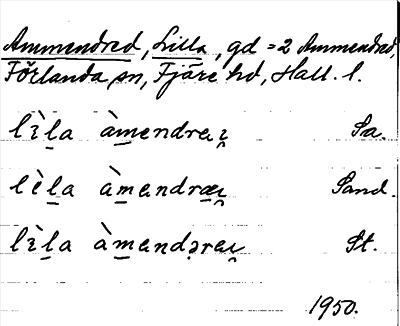 Ammendred, Lilla, gd = 2 Ammendred,
Förlanda sn, Fjäre hd, Hall. l.
lìl̲a àm̲endrei̯ Sa.
lèl̲a àm̲endræi̯ Sand.
lìl̲a àm̲endərei̯ St.
1950.